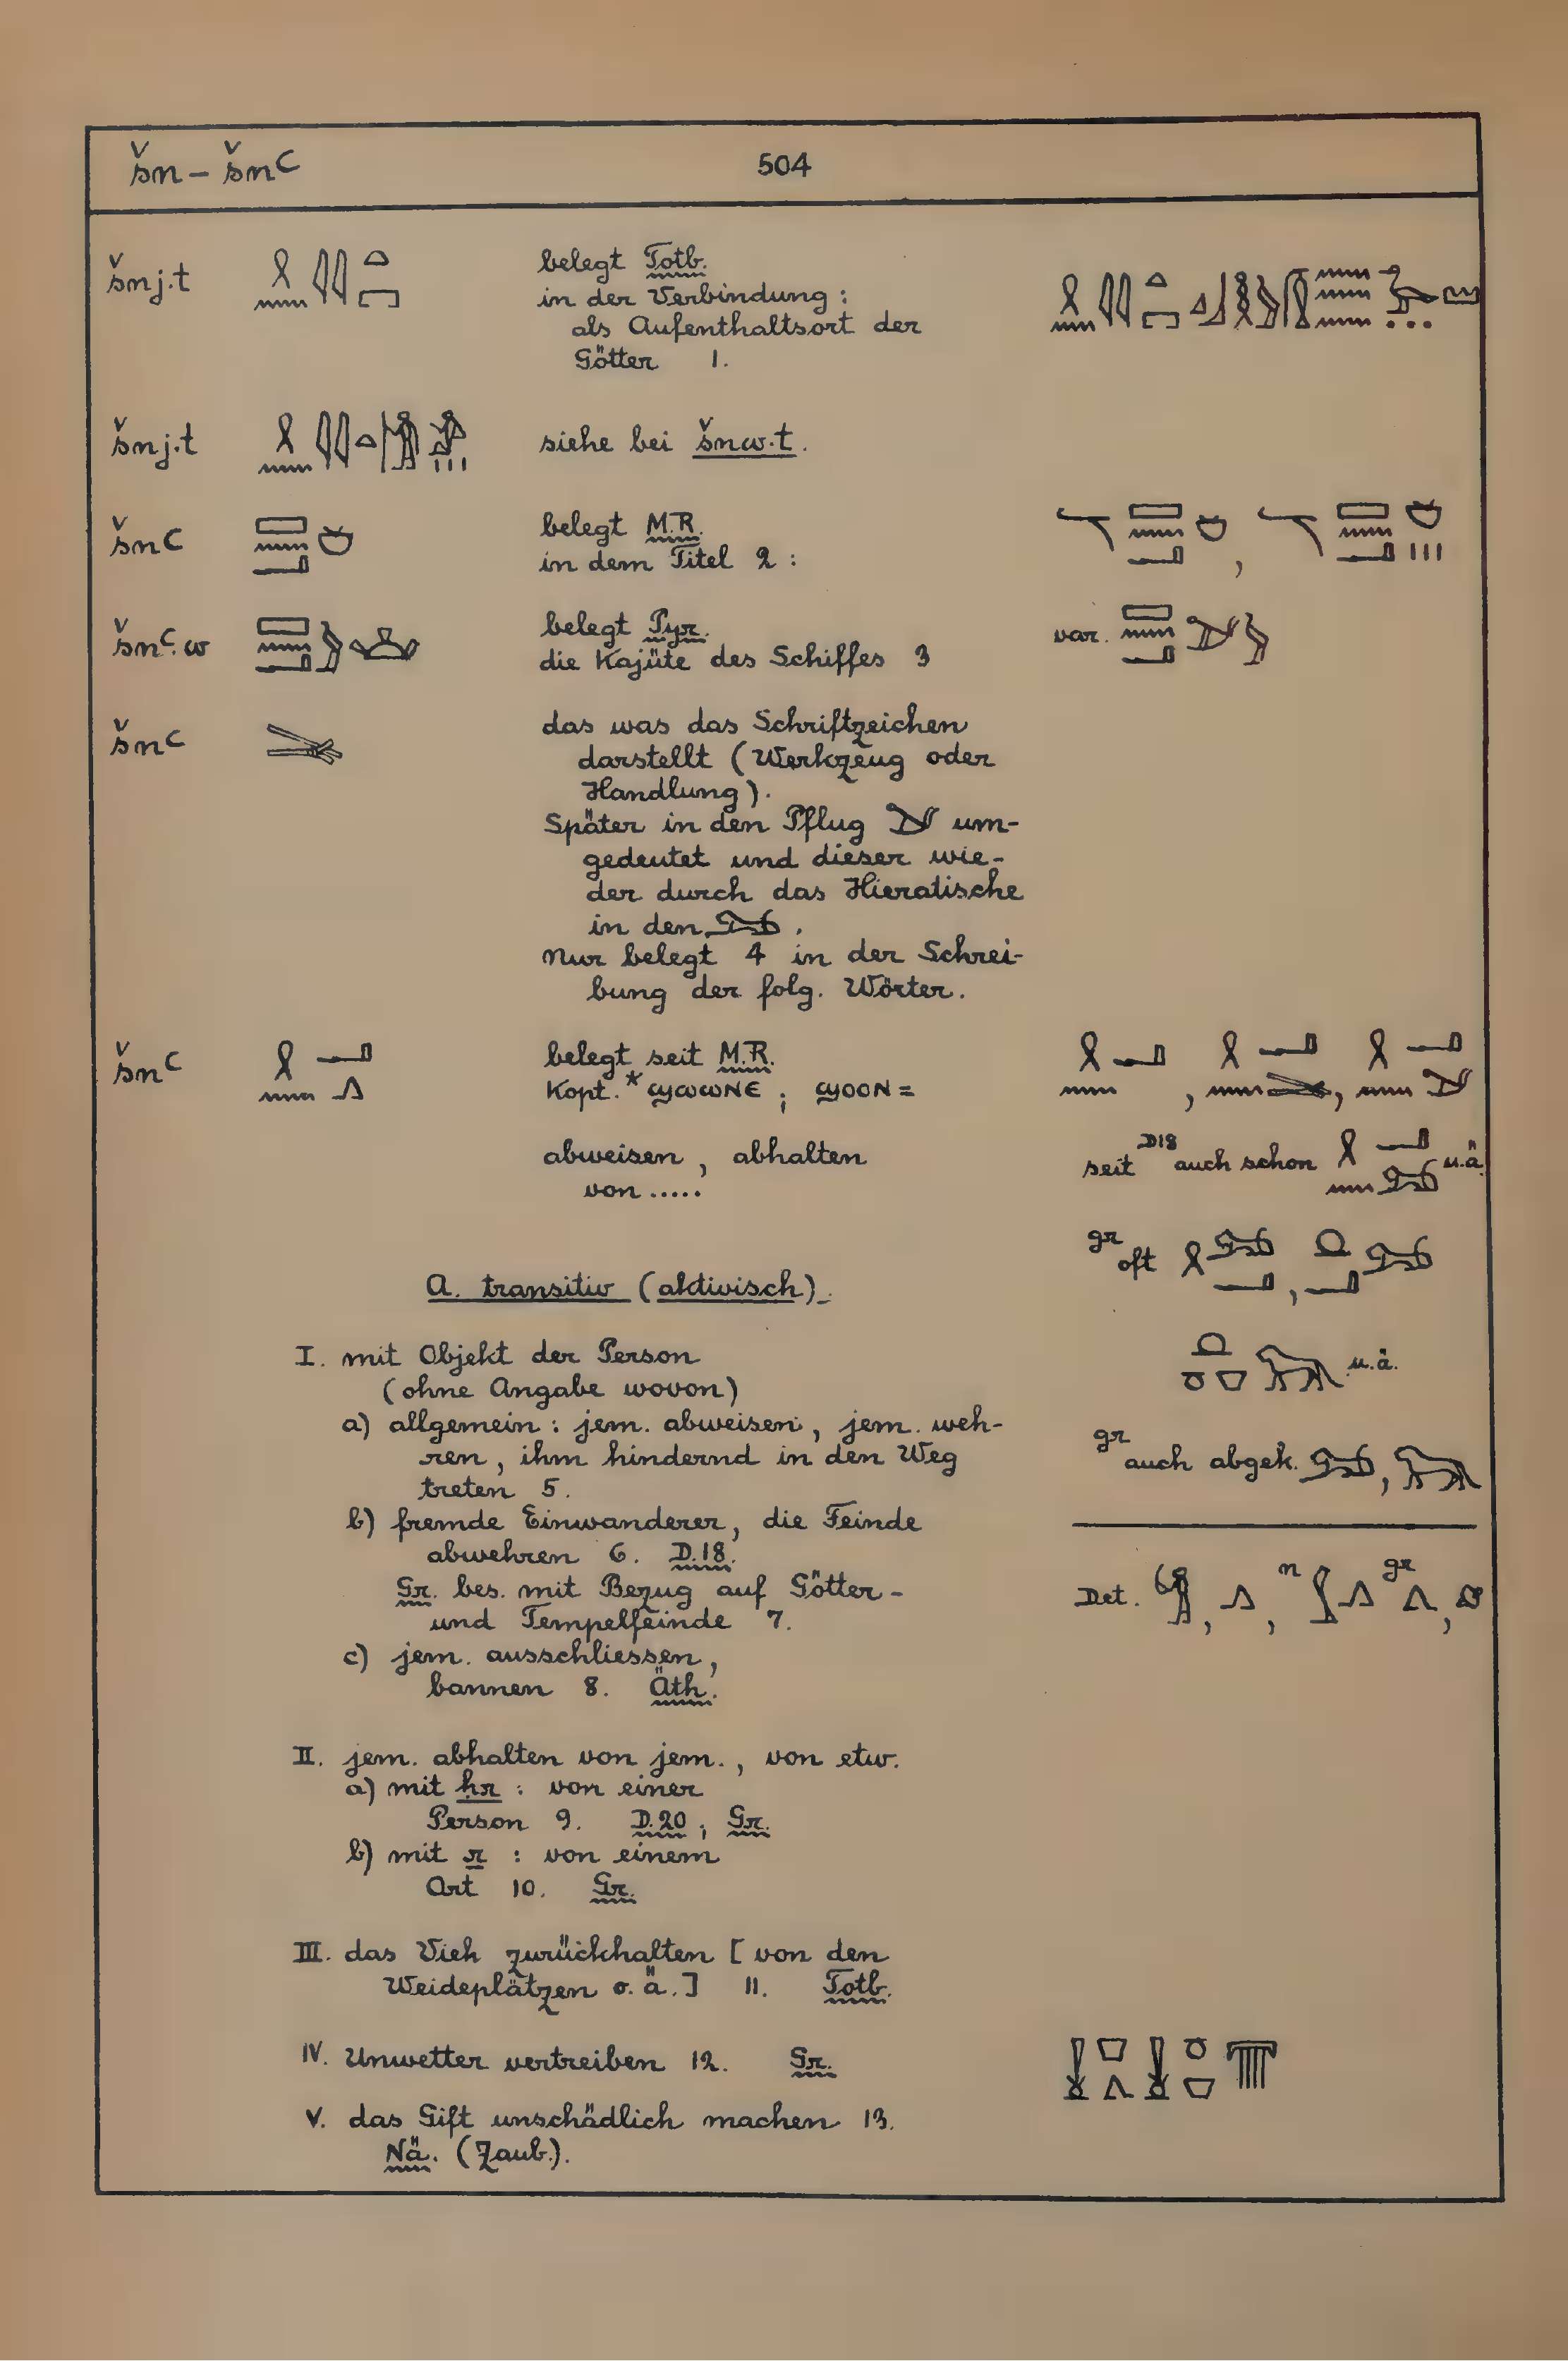 šn – šnꜥ 504
šnj.t belegt Totb.
in der Verbindung:
als Aufenthaltsort der
Götter 1.
šnj.t siehe bei šnw.t.
šnꜥ belegt M.R.
in dem Titel 2 : ,
šnꜥ.w belegt Pyr. var.
die Kajüte des Schiffes 3
šnꜥ das was das Schriftzeichen
darstellt (Werkzeug oder
Handlung).
Später in den Pflug um-
gedeutet und dieser wie-
der durch das Hieratische
in den .
Nur belegt 4 in der Schrei-
bung der folg. Wörter.
šnꜥ belegt seit M.R.
Kopt. *ϣⲱⲱⲛⲉ ; ϣⲟⲟⲛ= , ,
abweisen , abhalten
von .....
seit D18 auch schon u.ä.
gr oft ,
u.ä.
gr auch abgek. ,
Det. , , n gr ,
A. transitiv (aktivisch).
I. mit Objekt der Person
(ohne Angabe wovon)
a) allgemein : jem. abweisen, jem. weh-
ren, ihm hindernd in den Weg
treten 5.
b) fremde Einwanderer, die Feinde
abwehren 6. D.18.
Gr. bes. mit Bezug auf Götter-
und Tempelfeinde 7.
c) jem. ausschliessen,
bannen 8. Äth.
II. jem. abhalten von jem., von etw.
a) mit ḥr : von einer
Person 9. D.20 ; Gr.
b) mit r : von einem
Ort 10. Gr.
III. das Vieh zurückhalten [von den
Weideplätzen o.ä.] 11. Totb.
IV. Unwetter vertreiben 12. Gr.
V. das Gift unschädlich machen 13.
Nä. (Zaub.).